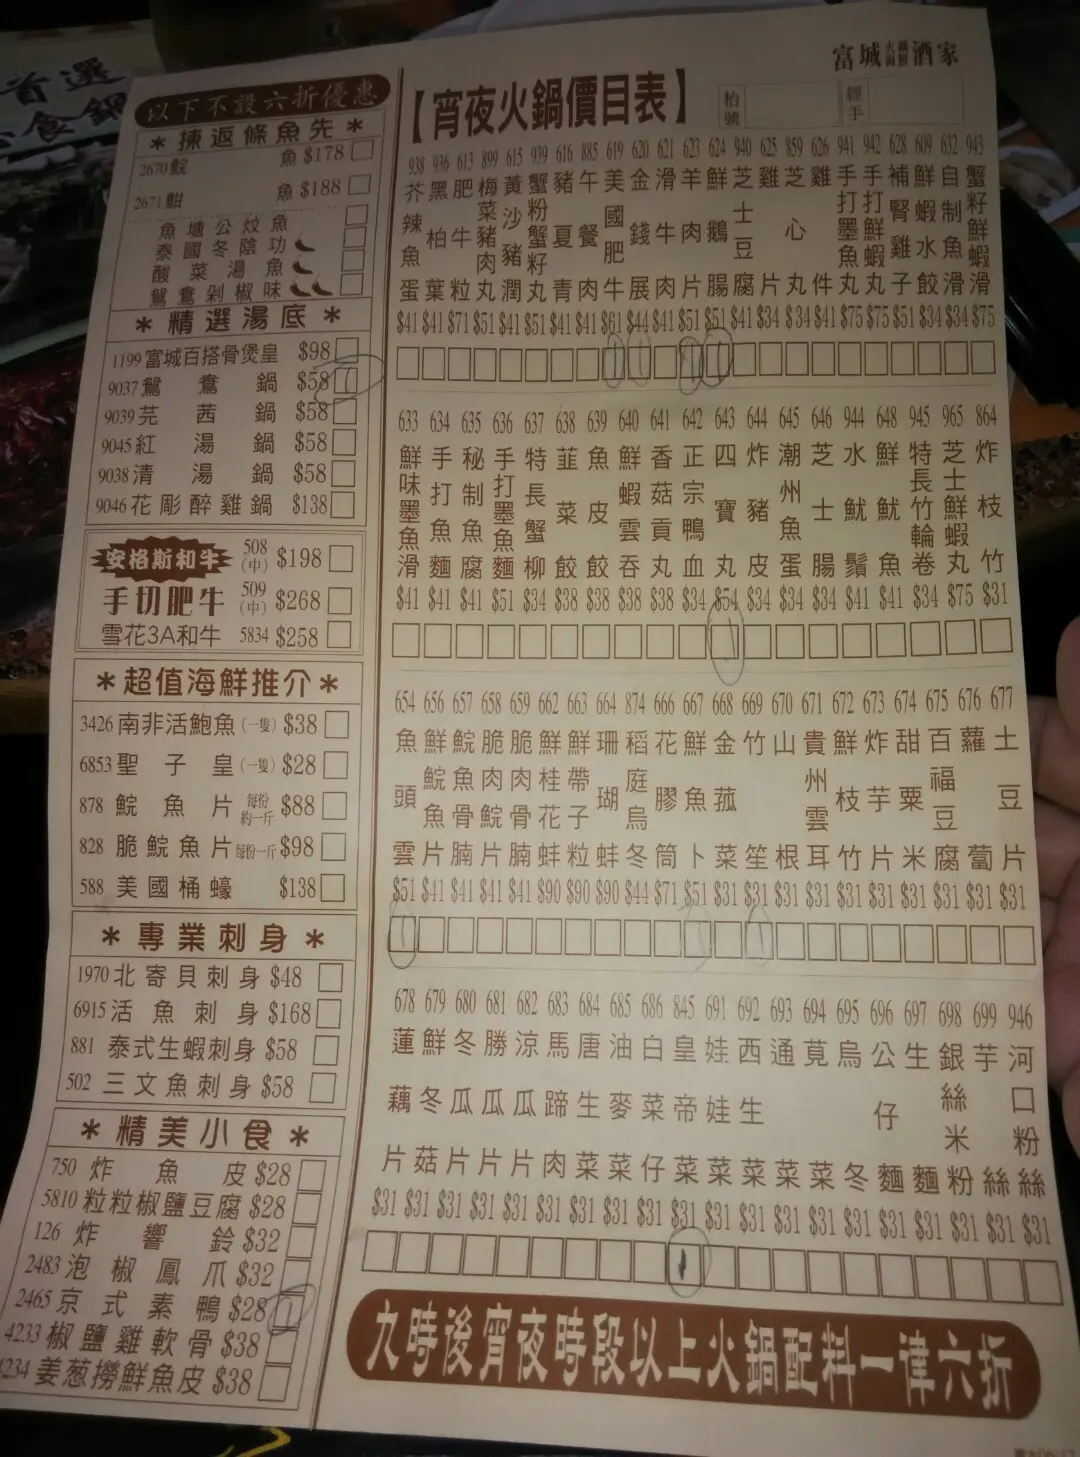 富城火鍋海鮮酒家
枱號
經手
以下不設六折優惠
＊揀返條魚先＊
2670 鯇魚 $178
2671 魽魚 $188
魚塘公炆魚
泰國冬陰功
酸菜湯魚
鴛鴦剁椒味
＊精選湯底＊
1199 富城百搭骨煲皇 $98
9037 鴛鴦鍋 $58
9039 芫茜鍋 $58
9045 紅湯鍋 $58
9038 清湯鍋 $58
9046 花彫醉雞鍋 $138
安格斯和牛 508 (中) $198
手切肥牛 509 (中) $268
雪花3A和牛 5834 $258
＊超值海鮮推介＊
3426 南非活鮑魚 (一隻) $38
6853 聖子皇 (一隻) $28
878 鯇魚片 每份約一斤 $88
828 脆鯇魚片 每份一斤 $98
588 美國桶蠔 $138
＊專業刺身＊
1970 北寄貝刺身 $48
6915 活魚刺身 $168
881 泰式生蝦刺身 $58
502 三文魚刺身 $58
＊精美小食＊
750 炸魚皮 $28
5810 粒粒椒鹽豆腐 $28
126 炸響鈴 $32
2483 泡椒鳳爪 $32
2465 京式素鴨 $28
4233 椒鹽雞軟骨 $38
4234 姜葱撈鮮魚皮 $38
【宵夜火鍋價目表】
938 芥辣魚蛋 $41
936 黑柏葉 $41
613 肥牛粒 $71
899 梅菜豬肉丸 $51
615 黃沙豬潤 $41
939 蟹粉蟹籽丸 $51
616 豬夏青 $41
885 午餐肉 $41
619 美國肥牛 $61
620 金錢展 $44
621 滑牛肉 $41
623 羊肉片 $51
624 鮮鵝腸 $51
940 芝士豆腐 $41
625 雞片 $34
859 芝心丸 $34
626 雞件 $41
941 手打墨魚丸 $75
942 手打鮮蝦丸 $75
628 補腎雞子 $51
609 鮮蝦水餃 $34
632 自制魚滑 $34
943 蟹籽鮮蝦滑 $75
633 鮮味墨魚滑 $41
634 手打魚麵 $41
635 秘制魚腐 $41
636 手打墨魚麵 $51
637 特長蟹柳 $34
638 韮菜餃 $38
639 魚皮餃 $38
640 鮮蝦雲吞 $38
641 香菇貢丸 $38
642 正宗鴨血 $34
643 四寶丸 $54
644 炸豬皮 $34
645 潮州魚蛋 $34
646 芝士腸 $34
944 水魷鬚 $41
648 鮮魷魚 $41
945 特長竹輪卷 $34
965 芝士鮮蝦丸 $75
864 炸枝竹 $31
654 魚頭雲 $51
656 鮮鯇魚片 $41
657 鯇魚骨腩 $41
658 脆肉鯇片 $41
659 脆肉骨腩 $41
662 鮮桂花蚌 $90
663 鮮帶子粒 $90
664 珊瑚蚌 $90
874 稻庭烏冬 $44
666 花膠筒 $71
667 鮮魚卜 $51
668 金菰菜 $31
669 竹笙 $31
670 山根 $31
671 貴州雲耳 $31
672 鮮枝竹 $31
673 炸芋片 $31
674 甜粟米 $31
675 百福豆腐 $31
676 蘿蔔 $31
677 土豆片 $31
678 蓮藕片 $31
679 鮮冬菇 $31
680 冬瓜片 $31
681 勝瓜片 $31
682 涼瓜片 $31
683 馬蹄肉 $31
684 唐生菜 $31
685 油麥菜 $31
686 白菜仔 $31
845 皇帝菜 $31
691 娃娃菜 $31
692 西生菜 $31
693 通菜 $31
694 莧菜 $31
695 烏冬 $31
696 公仔麵 $31
697 生麵 $31
698 銀絲米粉 $31
699 芋絲 $31
946 河口粉絲 $31
九時後宵夜時段以上火鍋配料一律六折